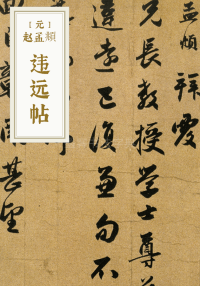 [元]
赵孟頫
违远帖
孟頫拜覆
兄長教授學士尊
違遠已復兼旬不
甚望